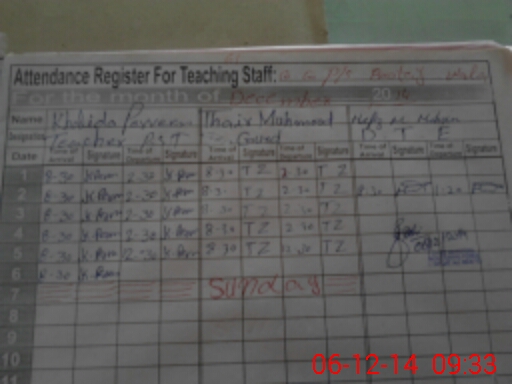 Attendance Register For Teaching Staff: G.G.P/S
For the month of December 2014
Name Khalida Parveen Thair Mahmood
Designation Teacher PST Guard D T E
Date Time of Arrival Signature Time of Departure Signature Time of Arrival Signature Time of Departure Signature Time of Arrival Signature Time of Departure Signature
1 8-30 K.Prm 2-30 K.Prm 8-30 TZ 2-30 TZ
2 8-30 K.Prm 2-30 K.Prm 8-30 TZ 2-30 TZ 8-30 1-20
3 8-30 K.Prm 2-30 K.Prm 8-30 TZ 2-30 TZ
4 8-30 K.Prm 2-30 K.Prm 8-30 TZ 2-30 TZ
5 8-30 K.Prm 2-30 K.Prm 8-30 TZ 12-30 TZ
6 8-30 K.Prm
7 Sunday
8
9
10
11
06-12-14 09:33